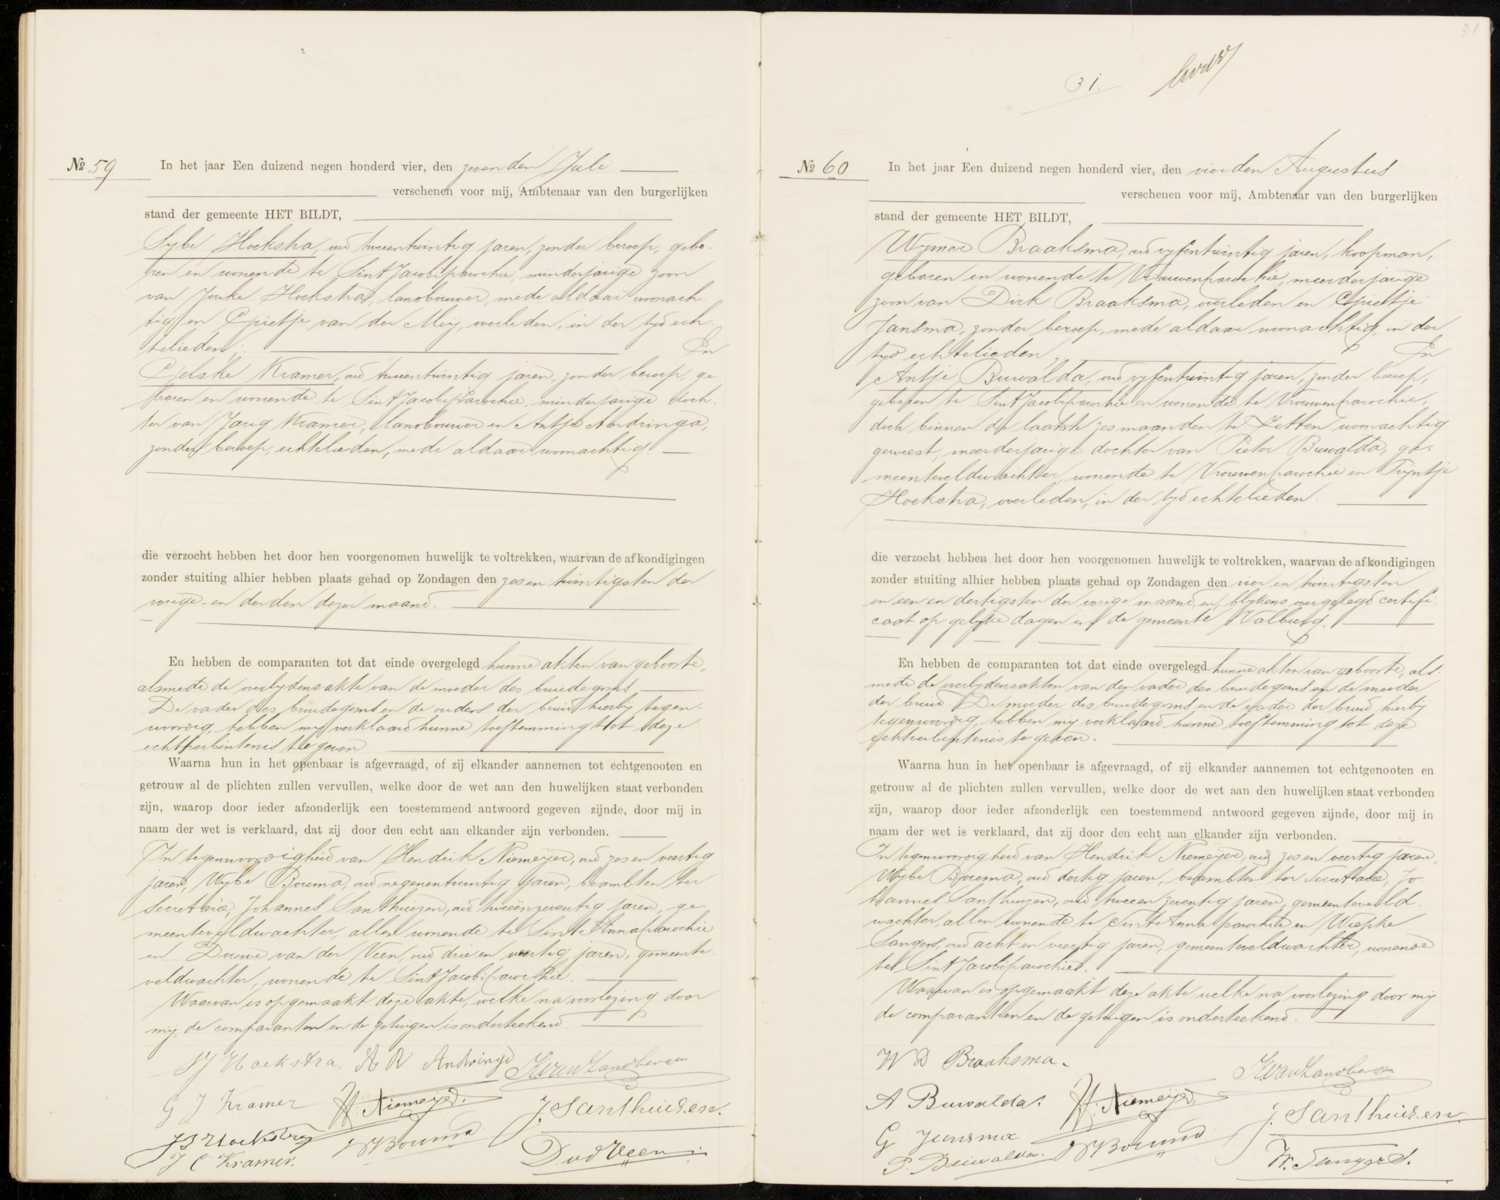 № 59
In het jaar Een duizend negen honderd vier, den zevenden Juli
verschenen voor mij, Ambtenaar van den burgerlijken
stand der gemeente HET BILDT,
Sybe Hoekstra, oud tweeentwintig jaren, zonder beroep, gebo-
ren en wonende te Sint Jacobiparochie, minderjarige zoon
van Jouke Hoekstra, landbouwer, mede aldaar woonach
tig, en Grietje van der Mey, overleden, in der tyd ech
telieden. En
Tjelske Kramer, oud tweeentwintig jaren, zonder beroep, ge
boren en wonende te Sint Jacobiparochie, minderjarige doch-
ter van Jarig Kramer, landbouwer en Antje Andringa,
zonder beroep, echtelieden, mede aldaar woonachtig
die verzocht hebben het door hen voorgenomen huwelijk te voltrekken, waarvan de afkondigingen
zonder stuiting alhier hebben plaats gehad op Zondagen den zesentwintigsten der
vorige en derden dezer maand.
En hebben de comparanten tot dat einde overgelegd hunne akten van geboorte,
alsmede de overlydensakte van de moeder des bruidegoms
De vader des bruidegoms en de ouders der bruid hierby tegen-
woordig, hebben my verklaard hunne toestemming tot deze
echtverbintenis te geven
Waarna hun in het openbaar is afgevraagd, of zij elkander aannemen tot echtgenooten en
getrouw al de plichten zullen vervullen, welke door de wet aan den huwelijken staat verbonden
zijn, waarop door ieder afzonderlijk een toestemmend antwoord gegeven zijnde, door mij in
naam der wet is verklaard, dat zij door den echt aan elkander zijn verbonden.
In tegenwoordigheid van Hendrik Niemeijer, oud zes en veertig
jaren, Wybe Bouma, oud negenentwintig jaren, beambten ter
Secretarie, Johannes Santhuizen, oud tweeënzeventig jaren, ge-
meenteveldwachter, allen wonende te Sint Annaparochie
en Douwe van der Veen, oud drie en veertig jaren, gemeente
veldwachter, wonende te Sint Jacobiparochie.
Waarvan is opgemaakt deze akte, welke na voorlezing door
my, de comparanten en de getuigen is onderteekend.
S J Hoekstra. A R Andringa
G J Kramer H Niemeijer. J. Santhuizen.
J S Hoekstra W Bouma D v d Veen
J C Kramer.
31.
№ 60
In het jaar Een duizend negen honderd vier, den vierden Augustus
verschenen voor mij, Ambtenaar van den burgerlijken
stand der gemeente HET BILDT,
Braaksma, oud vyfentwintig jaren, koopman,
geboren en wonende te Vrouwenparochie, meerderjarige
zoon van Dirk Braaksma, overleden en Grietje
Jansma, zonder beroep, mede aldaar woonachtig, in der
tyd echtelieden, En
Antje Buwalda, oud vyfentwintig jaren, zonder beroep,
geboren te Sint Jacobiparochie en wonende te Vrouwenparochie,
doch binnen de laatste zes maanden te Zetten woonachtig
geweest, meerderjarige dochter van Pieter Buwalda, ge-
meenteveldwachter, wonende te Vrouwenparochie en Tryntje
Hoekstra, overleden, in der tyd echtelieden.
die verzocht hebben het door hen voorgenomen huwelijk te voltrekken, waarvan de afkondigingen
zonder stuiting alhier hebben plaats gehad op Zondagen den vier en twintigsten
en een en dertigsten der vorige maand, en blykens overgelegd certifi
caat op gelyke dagen in de gemeente Valburg.
En hebben de comparanten tot dat einde overgelegd hunne akten van geboorte, als
mede de overlydensakten van den vader des bruidegoms en de moeder
der bruid. De moeder des bruidegoms en de vader der bruid hierby
tegenwoordig, hebben my verklaard hunne toestemming tot deze
echtverbintenis te geven.
Waarna hun in het openbaar is afgevraagd, of zij elkander aannemen tot echtgenooten en
getrouw al de plichten zullen vervullen, welke door de wet aan den huwelijken staat verbonden
zijn, waarop door ieder afzonderlijk een toestemmend antwoord gegeven zijnde, door mij in
naam der wet is verklaard, dat zij door den echt aan elkander zijn verbonden.
In tegenwoordigheid van Hendrik Niemeijer, oud zes en veertig jaren,
Wybe Bouma, oud dertig jaren, beambten ter Secretarie, Jo
hannes Santhuizen, oud tweeen zeventig jaren, gemeenteveld
wachter, allen wonende te Sint Annaparochie en Wiepke
Sangers, oud acht en veertig jaren, gemeenteveldwachter, wonende
te Sint Jacobiparochie.
Waarvan is opgemaakt deze akte welke na voorlezing door my
de comparanten en de getuigen is onderteekend.
W D Braaksma.
A Buwalda. H Niemeijer J. Santhuizen
G Jansma W Bouma
P. Buwalda. W. Sangers.